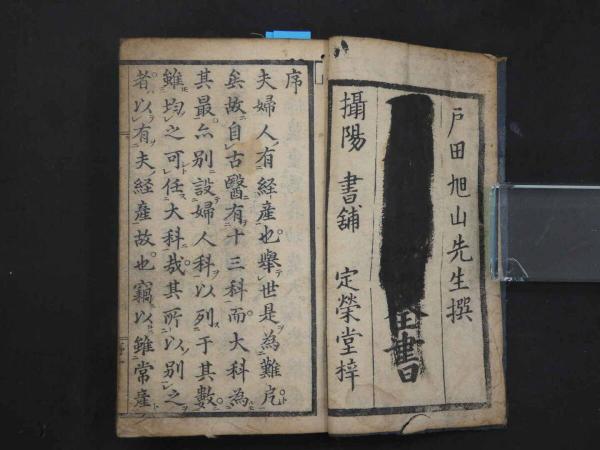 戸田旭山先生撰
全書
攝陽 書舗 定榮堂梓
序
夫婦人有經産也舉世是為難戹
矣故自古醫有十三科而大科為
其最尓別設婦人科以列于其數
雖均之可任大科哉其所以別之
者以有夫經産故也竊以雖常産